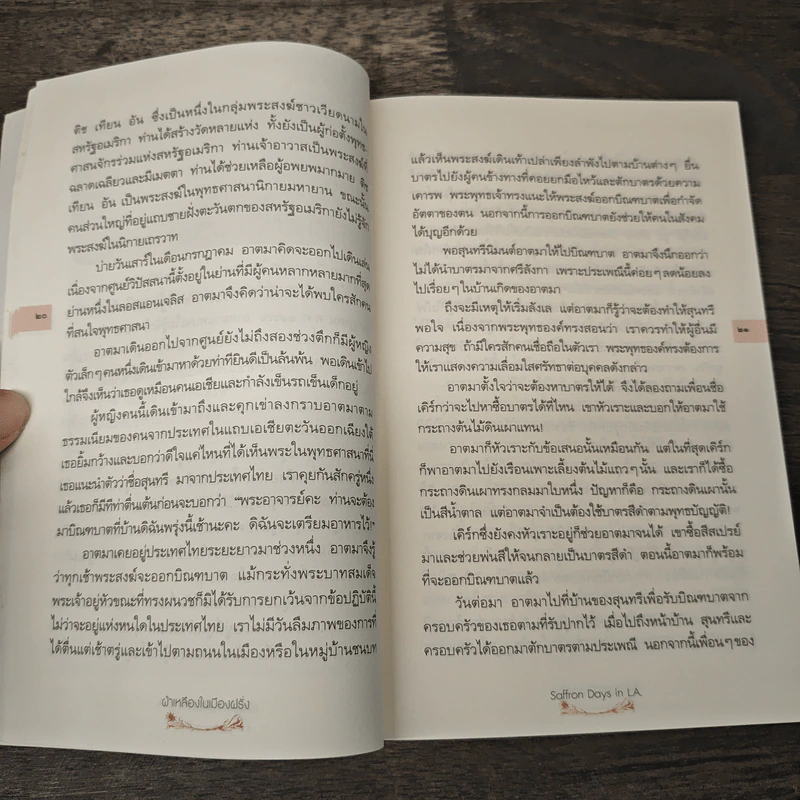 ติช เทียน อัน ซึ่งเป็นหนึ่งในกลุ่มพระสงฆ์ชาวเวียดนามใน
สหรัฐอเมริกา ท่านได้สร้างวัดหลายแห่ง ทั้งยังเป็นผู้ก่อตั้งพุทธ-
ศาสนจักรร่วมแห่งสหรัฐอเมริกา ท่านเจ้าอาวาสเป็นพระสงฆ์ที่
ฉลาดเฉลียวและมีเมตตา ท่านได้ช่วยเหลือผู้อพยพมากมาย ติช
เทียน อัน เป็นพระสงฆ์ในพุทธศาสนานิกายมหายาน ขณะนั้น
คนส่วนใหญ่ที่อยู่แถบชายฝั่งตะวันตกของสหรัฐอเมริกายังไม่รู้จัก
พระสงฆ์ในนิกายเถรวาท
บ่ายวันเสาร์ในเดือนกรกฎาคม อาตมาคิดจะออกไปเดินเล่น
เนื่องจากศูนย์วิปัสสนานี้ตั้งอยู่ในย่านที่มีผู้คนหลากหลายมากที่สุด
ย่านหนึ่งในลอสแอนเจลิส อาตมาจึงคิดว่าน่าจะได้พบใครสักคน
ที่สนใจพุทธศาสนา
๒๐
อาตมาเดินออกไปจากศูนย์ยังไม่ถึงสองช่วงตึกก็มีผู้หญิง
ตัวเล็กๆคนหนึ่งเดินเข้ามาหาด้วยท่าทียินดีเป็นล้นพ้น พอเดินเข้าไป
ใกล้จึงเห็นว่าเธอดูเหมือนคนเอเชียและกำลังเข็นรถเข็นเด็กอยู่
ผู้หญิงคนนี้เดินเข้ามาถึงและคุกเข่าลงกราบอาตมาตาม
ธรรมเนียมของคนจากประเทศในแถบเอเชียตะวันออกเฉียงใต้
เธอยิ้มกว้างและบอกว่าดีใจแค่ไหนที่ได้เห็นพระในพุทธศาสนาที่นี่
เธอแนะนำตัวว่าชื่อสุนทรี มาจากประเทศไทย เราคุยกันสักครู่หนึ่ง
แล้วเธอก็มีทีท่าตื่นเต้นก่อนจะบอกว่า “พระอาจารย์คะ ท่านจะต้อง
มาบิณฑบาตที่บ้านดิฉันพรุ่งนี้เช้านะคะ ดิฉันจะเตรียมอาหารไว้!”
อาตมาเคยอยู่ประเทศไทยระยะยาวมาช่วงหนึ่ง อาตมาจึงรู้
ว่าทุกเช้าพระสงฆ์จะออกบิณฑบาต แม้กระทั่งพระบาทสมเด็จ
พระเจ้าอยู่หัวขณะที่ทรงผนวชก็มิได้รับการยกเว้นจากข้อปฏิบัตินี้
ไม่ว่าจะอยู่แห่งหนใดในประเทศไทย เราไม่มีวันลืมภาพของการที่
ได้ตื่นแต่เช้าตรู่และเข้าไปตามถนนในเมืองหรือในหมู่บ้านชนบท
ผ้าเหลืองในเมืองฝรั่ง
แล้วเห็นพระสงฆ์เดินเท้าเปล่าเพียงลำพังไปตามบ้านต่างๆ ยื่น
บาตรไปยังผู้คนข้างทางที่คอยยกมือไหว้และตักบาตรด้วยความ
เคารพ พระพุทธเจ้าทรงแนะให้พระสงฆ์ออกบิณฑบาตเพื่อกำจัด
อัตตาของตน นอกจากนี้การออกบิณฑบาตยังช่วยให้คนในสังคม
ได้บุญอีกด้วย
พอสุนทรีนิมนต์อาตมาให้ไปบิณฑบาต อาตมาจึงนึกออกว่า
ไม่ได้นำบาตรมาจากศรีลังกา เพราะประเพณีนี้ค่อยๆลดน้อยลง
ไปเรื่อยๆในบ้านเกิดของอาตมา
ถึงจะมีเหตุให้เริ่มลังเล แต่อาตมาก็รู้ว่าจะต้องทำให้สุนทรี
พอใจ เนื่องจากพระพุทธองค์ทรงสอนว่า เราควรทำให้ผู้อื่นมี
ความสุข ถ้ามีใครสักคนเชื่อถือในตัวเรา พระพุทธองค์ทรงต้องการ
ให้เราแสดงความเลื่อมใสศรัทธาต่อบุคคลดังกล่าว
๒๑
อาตมาตั้งใจว่าจะต้องหาบาตรให้ได้ จึงได้ลองถามเพื่อนชื่อ
เคิร์กว่าจะไปหาซื้อบาตรได้ที่ไหน เขาหัวเราะและบอกให้อาตมาใช้
กระถางต้นไม้ดินเผาแทน!
อาตมาก็หัวเราะกับข้อเสนอนั้นเหมือนกัน แต่ในที่สุดเคิร์ก
ก็พาอาตมาไปยังเรือนเพาะเลี้ยงต้นไม้แถวๆนั้น และเราก็ได้ซื้อ
กระถางดินเผาทรงกลมมาใบหนึ่ง ปัญหาก็คือ กระถางดินเผานั้น
เป็นสีน้ำตาล แต่อาตมาจำเป็นต้องใช้บาตรสีดำตามพุทธบัญญัติ!
เคิร์กซึ่งยังคงหัวเราะอยู่ก็ช่วยอาตมาจนได้ เขาซื้อสีสเปรย์
มาและช่วยพ่นสีให้จนกลายเป็นบาตรสีดำ ตอนนี้อาตมาก็พร้อม
ที่จะออกบิณฑบาตแล้ว
วันต่อมา อาตมาไปที่บ้านของสุนทรีเพื่อรับบิณฑบาตจาก
ครอบครัวของเธอตามที่รับปากไว้ เมื่อไปถึงหน้าบ้าน สุนทรีและ
ครอบครัวได้ออกมาตักบาตรตามประเพณี นอกจากนี้เพื่อนๆของ
Saffron Days in L.A.